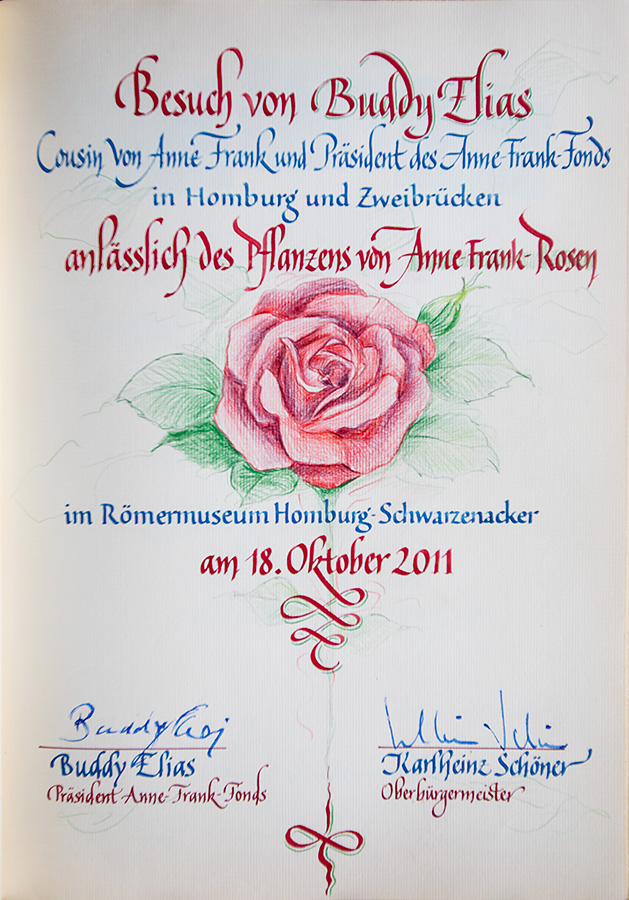 Besuch von Buddy Elias
Cousin von Anne Frank und Präsident des Anne-Frank-Fonds
in Homburg und Zweibrücken
anlässlich des Pflanzens von Anne-Frank-Rosen
im Römermuseum Homburg-Schwarzenacker
am 18. Oktober 2011
Buddy Elias
Buddy Elias
Präsident Anne-Frank-Fonds
Karlheinz Schöner
Oberbürgermeister